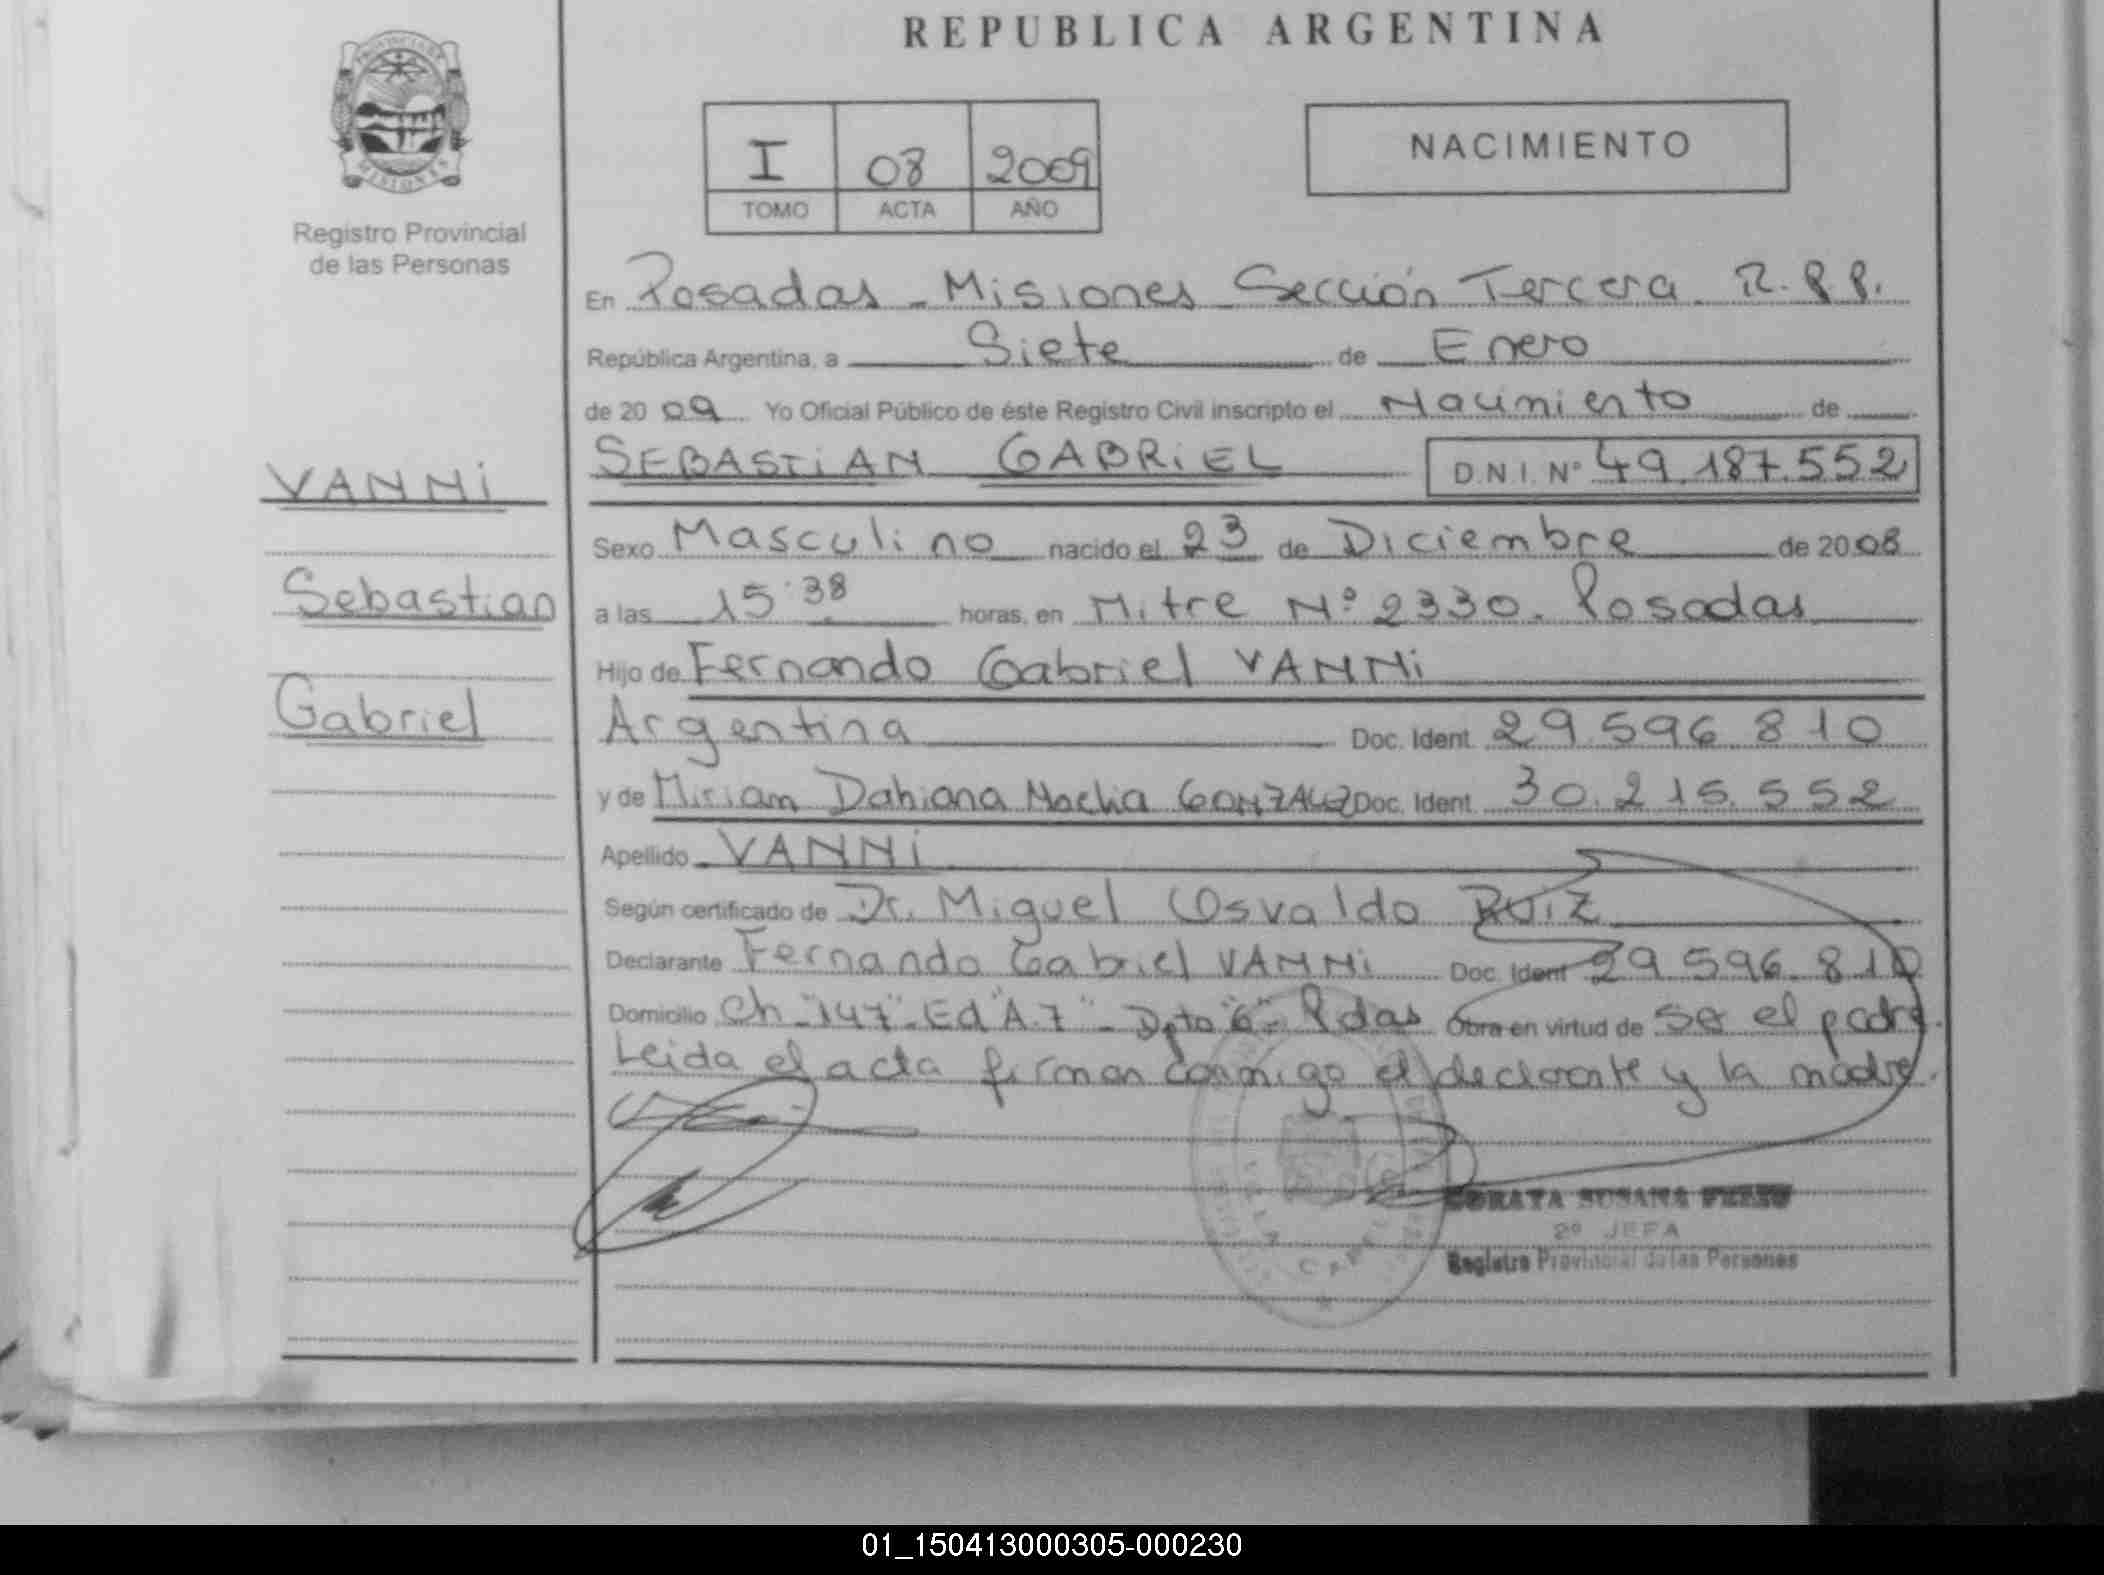 REPUBLICA ARGENTINA
PROVINCIA DE
MISIONES
Registro Provincial
de las Personas
I 08 2009
TOMO ACTA AÑO
NACIMIENTO
En Posadas - Misiones Sección Tercera R.P.P.
República Argentina, a Siete de Enero
de 20 09 Yo Oficial Público de éste Registro Civil inscripto el Nacimiento de
VANNi
SEBASTiAN GABRiEL D.N.I. Nº 49.187.552
Sexo Masculino nacido el 23 de Diciembre de 20 08
Sebastian
a las 15:38 horas, en Mitre Nº 2330. Posadas
Hijo de Fernando Gabriel VANNi
Gabriel
Argentina Doc. Ident. 29.596.810
y de Miriam Dahiana GONZALEZ Doc. Ident. 30.215.552
Apellido VANNi
Según certificado de Dr. Miguel Osvaldo RUiZ
Declarante Fernando Gabriel VANNi Doc. Ident 29.596.810
Domicilio Ch "147" - Ed "A.7" - Dpto "6" - Pdas Obra en virtud de ser el padre.
Leida el acta firman conmigo el declarante y la madre.
SUSANA
2º JEFA
Registro Provincial de las Personas
01_150413000305-000230